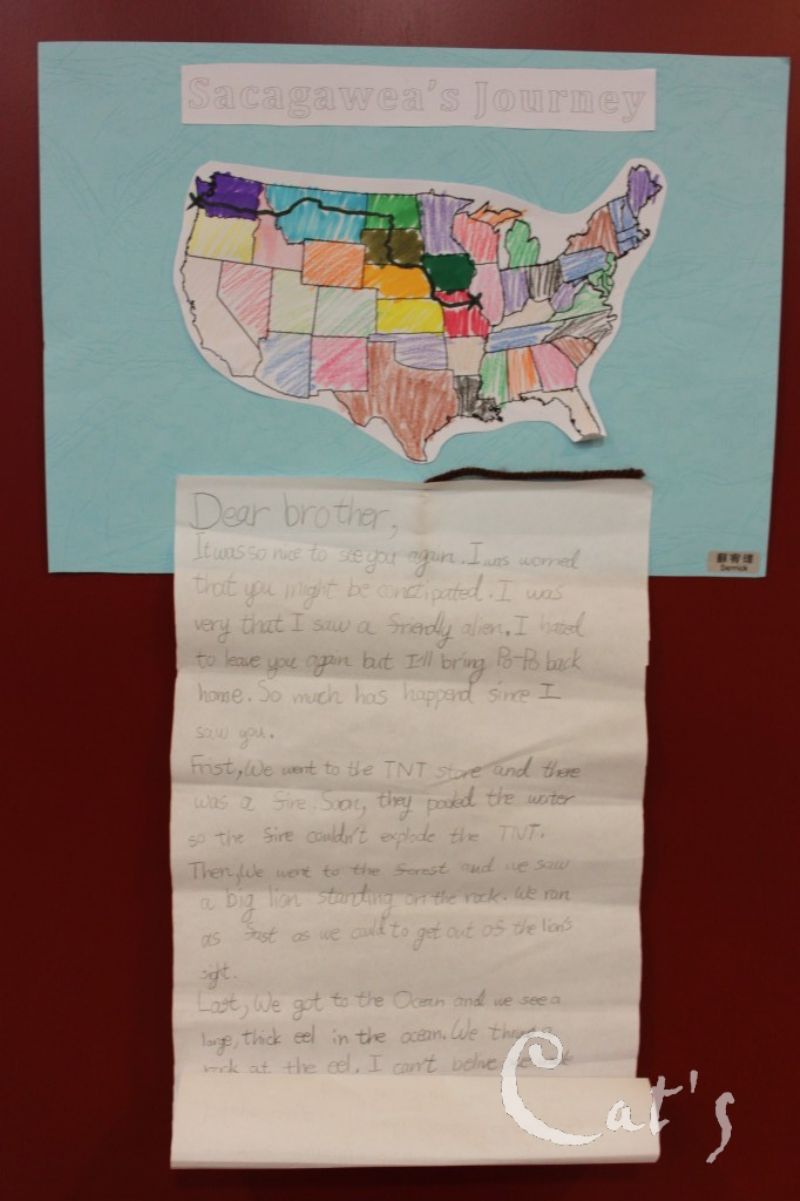 Sacagawea's Journey
Dear brother,
It was so nice to see you again. I was worried
that you might be constipated. I was
very that I saw a friendly alien. I hated
to leave you again but I'll bring Po-Po back
home. So much has happend since I
saw you.
Frist, We went to the TNT store and there
was a fire. Soon, they pooled the water
so the fire couldn't explode the TNT.
Then, We went to the forest and we saw
a big lion standing on the rock. We ran
as fast as we could to get out of the lion's
sight.
Last, We got to the Ocean and we see a
large, thick eel in the ocean. We a
rock at the eel. I can't belive
蘇宥瑋
Derrick
Cat's